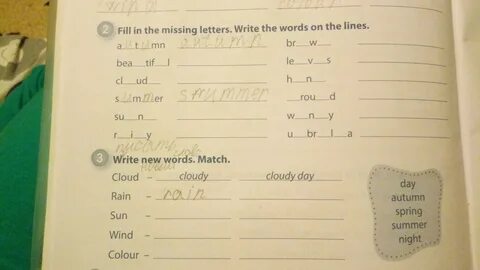 2 Fill in the missing letters. Write the words on the lines.
autumn autumn br__w__
bea__tif__l le__v__s
cl__ud h__n
summer strummer __rou__d
su__n w__n__y
r__i__y u__br__l__a
3 Write new words. Match.
Cloud – cloudy cloudy day
Rain – rain
Sun –
Wind –
Colour –
day
autumn
spring
summer
night